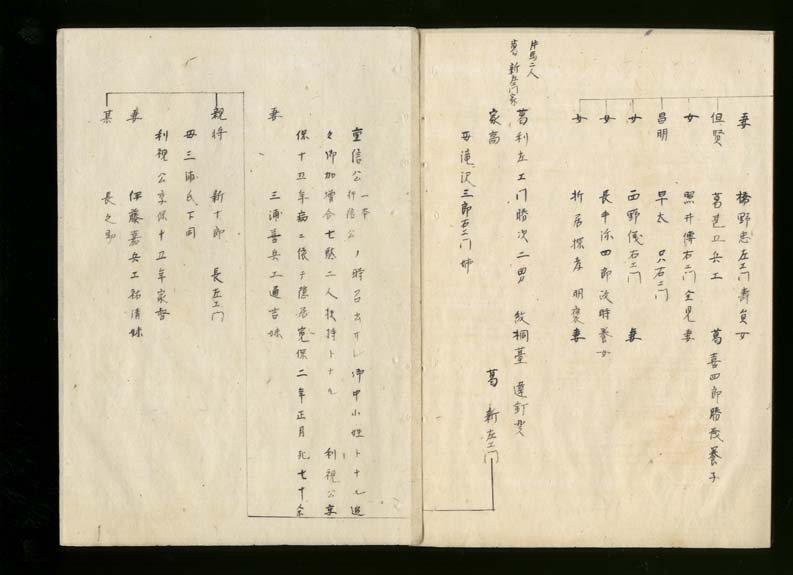 妻　橋野忠左エ門壽貞女
但賢　葛荒卫兵工　葛喜四郎勝茂養子
女　照井傳右エ門全見妻
昌明　早太　只右エ門
女　西野儀右エ門　妻
女　長牛添四郎政時養女
女　折居探孝明褒妻
片馬二人
葛新左エ門家
葛利左エ門勝次二男　紋桐薹　違釘貫
家高　葛　新左エ門
母滝沢三郎右エ門姉
重信公一本行信公ノ時召出サレ御中小姓トナル追
々御加増合七駄二人扶持トナル　利視公享
保十五年病ニ依テ隠居寛保二年正月死七十余
妻　三浦善兵工通吉妹
親将　新十郎　長左エ門
母三浦氏下同
利視公享保十五年家督
妻　伊藤嘉兵工祐清妹
某　長之助